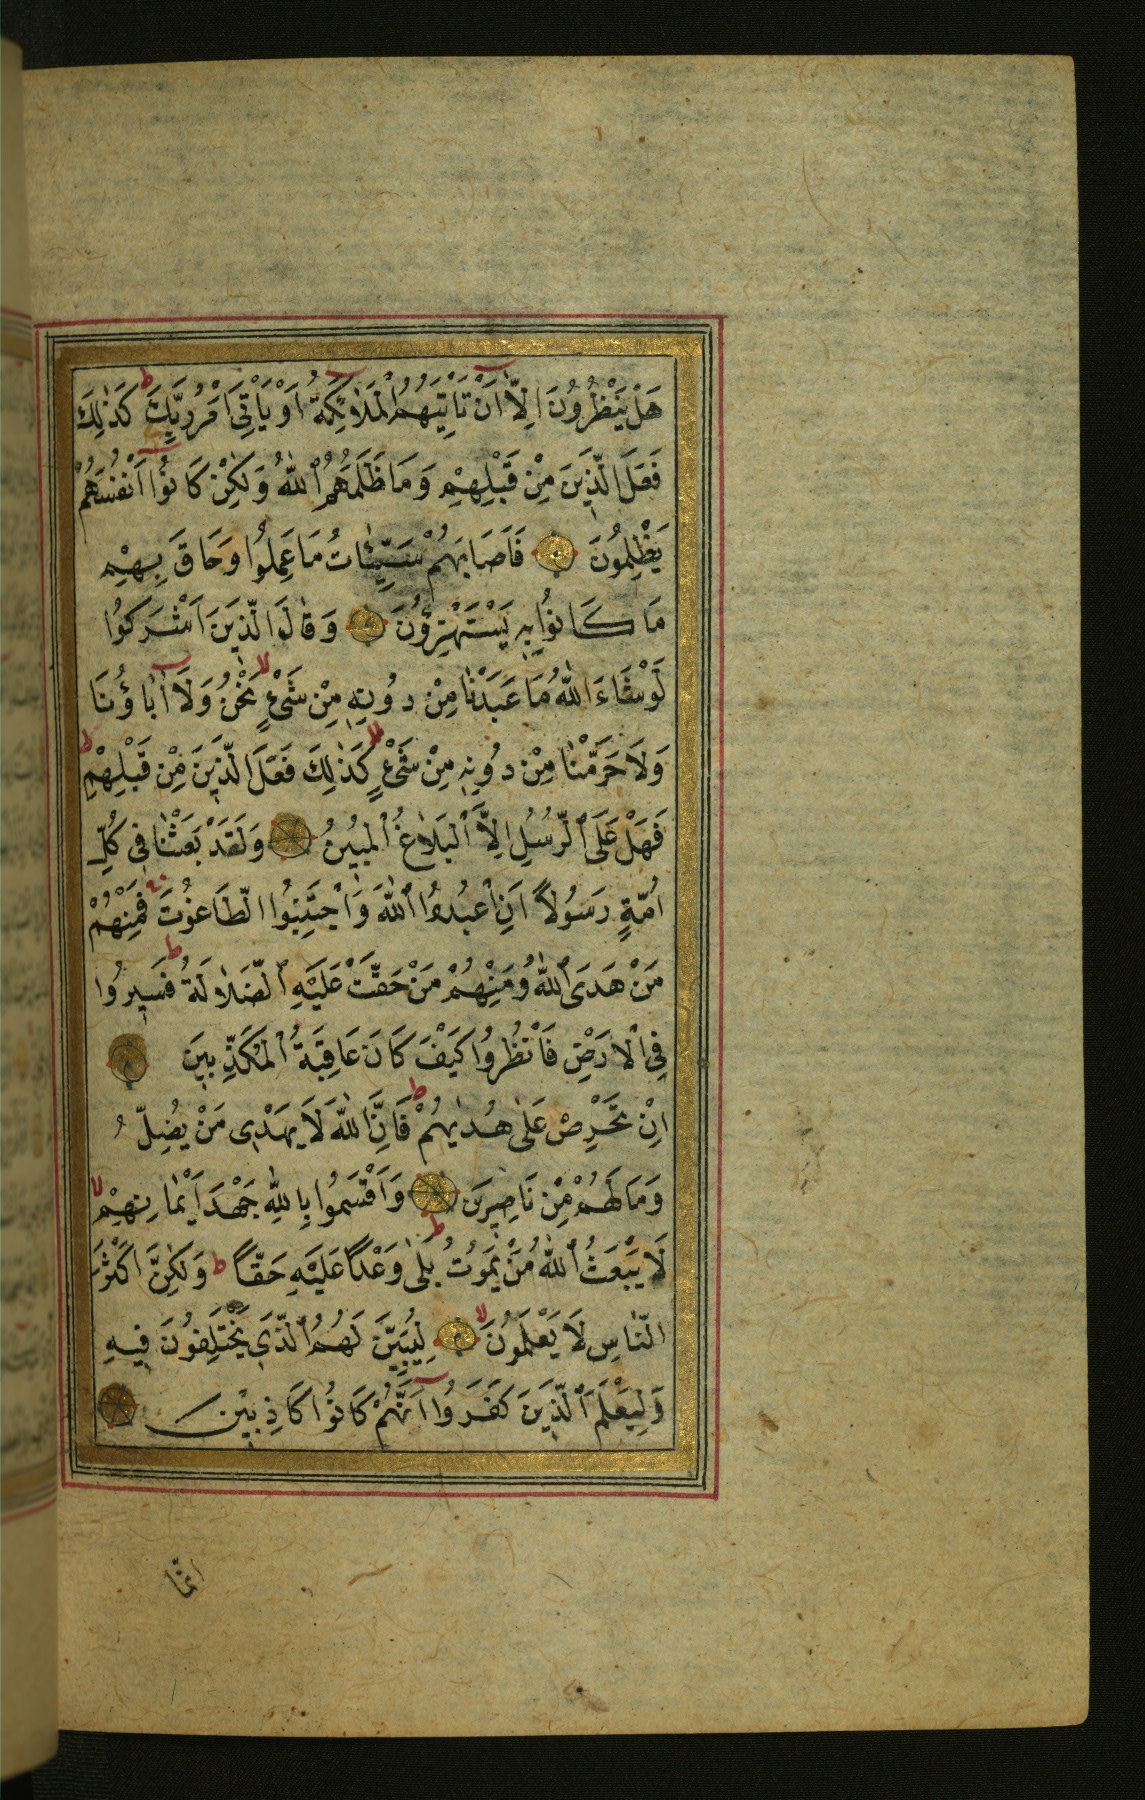 هَلْ يَنْظُرُونَ اِلَّا اَنْ تَاْتِيَهُمُ الْمَلٰٓئِكَةُ اَوْ يَاْتِىَ اَمْرُ رَبِّكَ ط كَذٰلِكَ
فَعَلَ الَّذِينَ مِنْ قَبْلِهِمْ وَمَا ظَلَمَهُمُ اللّٰهُ وَلٰكِنْ كَانُوٓا اَنْفُسَهُمْ
يَظْلِمُونَ فَاَصَابَهُمْ سَيِّئٰاتُ مَا عَمِلُوا وَحَاقَ بِهِمْ
مَا كَانُوا بِهٖ يَسْتَهْزِؤُنَ وَقَالَ الَّذِينَ اَشْرَكُوا
لَوْ شَآءَ اللّٰهُ مَا عَبَدْنَا مِنْ دُونِهٖ مِنْ شَىْءٍ لا نَحْنُ وَلَٓا اٰبَاؤُنَا
وَلَا حَرَّمْنَا مِنْ دُونِهٖ مِنْ شَىْءٍ ط كَذٰلِكَ فَعَلَ الَّذِينَ مِنْ قَبْلِهِمْ ط
فَهَلْ عَلَى الرُّسُلِ اِلَّا الْبَلَاغُ الْمُبِينُ وَلَقَدْ بَعَثْنَا فِى كُلِّ
اُمَّةٍ رَسُولًا اَنِ اعْبُدُوا اللّٰهَ وَاجْتَنِبُوا الطَّاغُوتَ فَمِنْهُمْ
مَنْ هَدَى اللّٰهُ وَمِنْهُمْ مَنْ حَقَّتْ عَلَيْهِ الضَّلَالَةُ ط فَسِيرُوا
فِى الْاَرْضِ فَانْظُرُوا كَيْفَ كَانَ عَاقِبَةُ الْمُكَذِّبِينَ
اِنْ تَحْرِصْ عَلٰى هُدٰيهُمْ ط فَاِنَّ اللّٰهَ لَا يَهْدِى مَنْ يُضِلُّ
وَمَا لَهُمْ مِنْ نَاصِرِينَ وَاَقْسَمُوا بِاللّٰهِ جَهْدَ اَيْمَانِهِمْ لا
لَا يَبْعَثُ اللّٰهُ مَنْ يَمُوتُ ط بَلٰى وَعْدًا عَلَيْهِ حَقًّا ط وَلٰكِنَّ اَكْثَرَ
النَّاسِ لَا يَعْلَمُونَ لا لِيُبَيِّنَ لَهُمُ الَّذِى يَخْتَلِفُونَ فِيهِ
وَلِيَعْلَمَ الَّذِينَ كَفَرُوٓا اَنَّهُمْ كَانُوا كَاذِبِينَ
اِنَّمَا